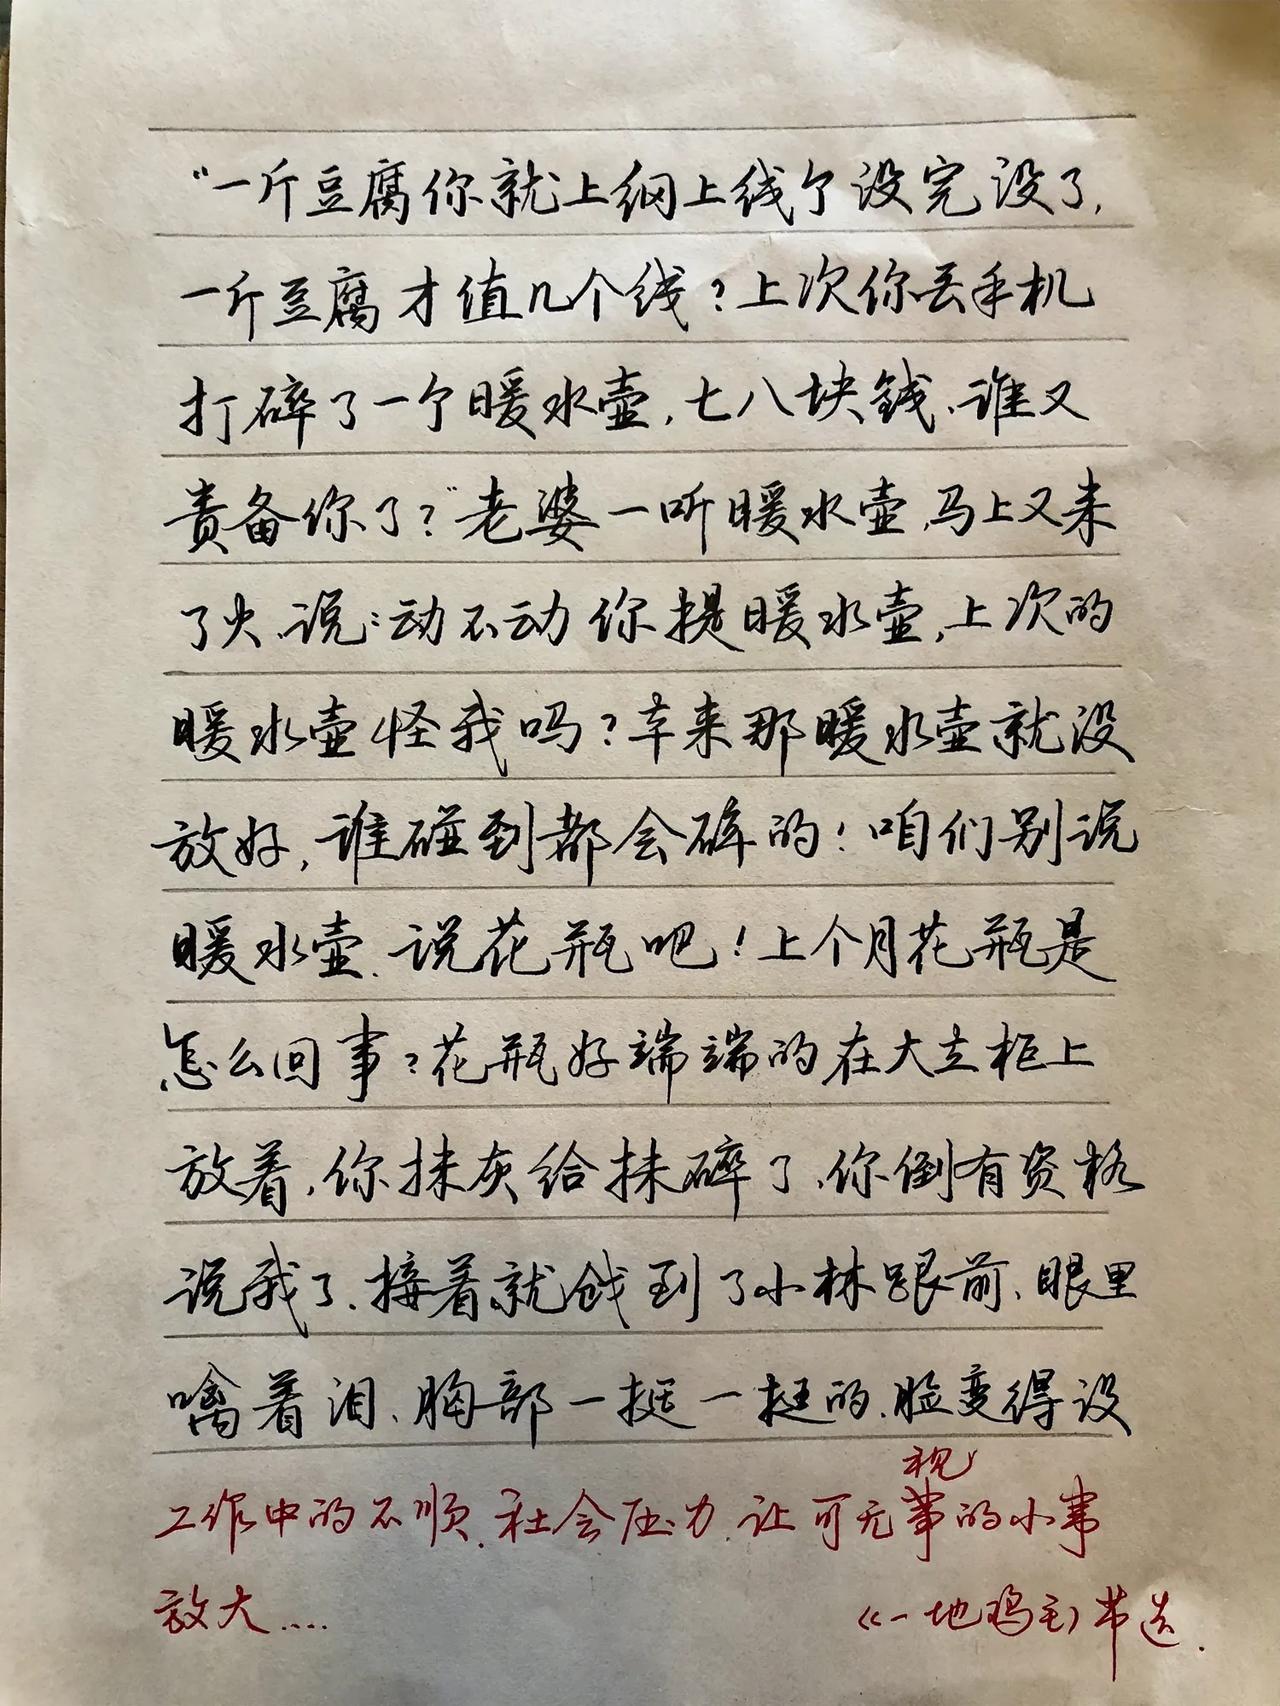 “一斤豆腐你就上纲上线个没完没了,
一斤豆腐才值几个线?上次你丢手机
打碎了一个暖水壶,七八块钱、谁又
责备你了?”老婆一听暖水壶,马上又来
了火、说:动不动你提暖水壶,上次的
暖水壶怪我吗?本来那暖水壶就没
放好,谁碰到都会碎的!咱们别说
暖水壶、说花瓶吧!上个月花瓶是
怎么回事?花瓶好端端的在大立柜上
放着,你抹灰给抹碎了、你倒有资格
说我了、接着就戗到了小林跟前、眼里
噙着泪、胸部一挺一挺的、脸变得没
视
工作中的不顺、社会压力、让可无事的小事
放大....
《一地鸡毛》节选.